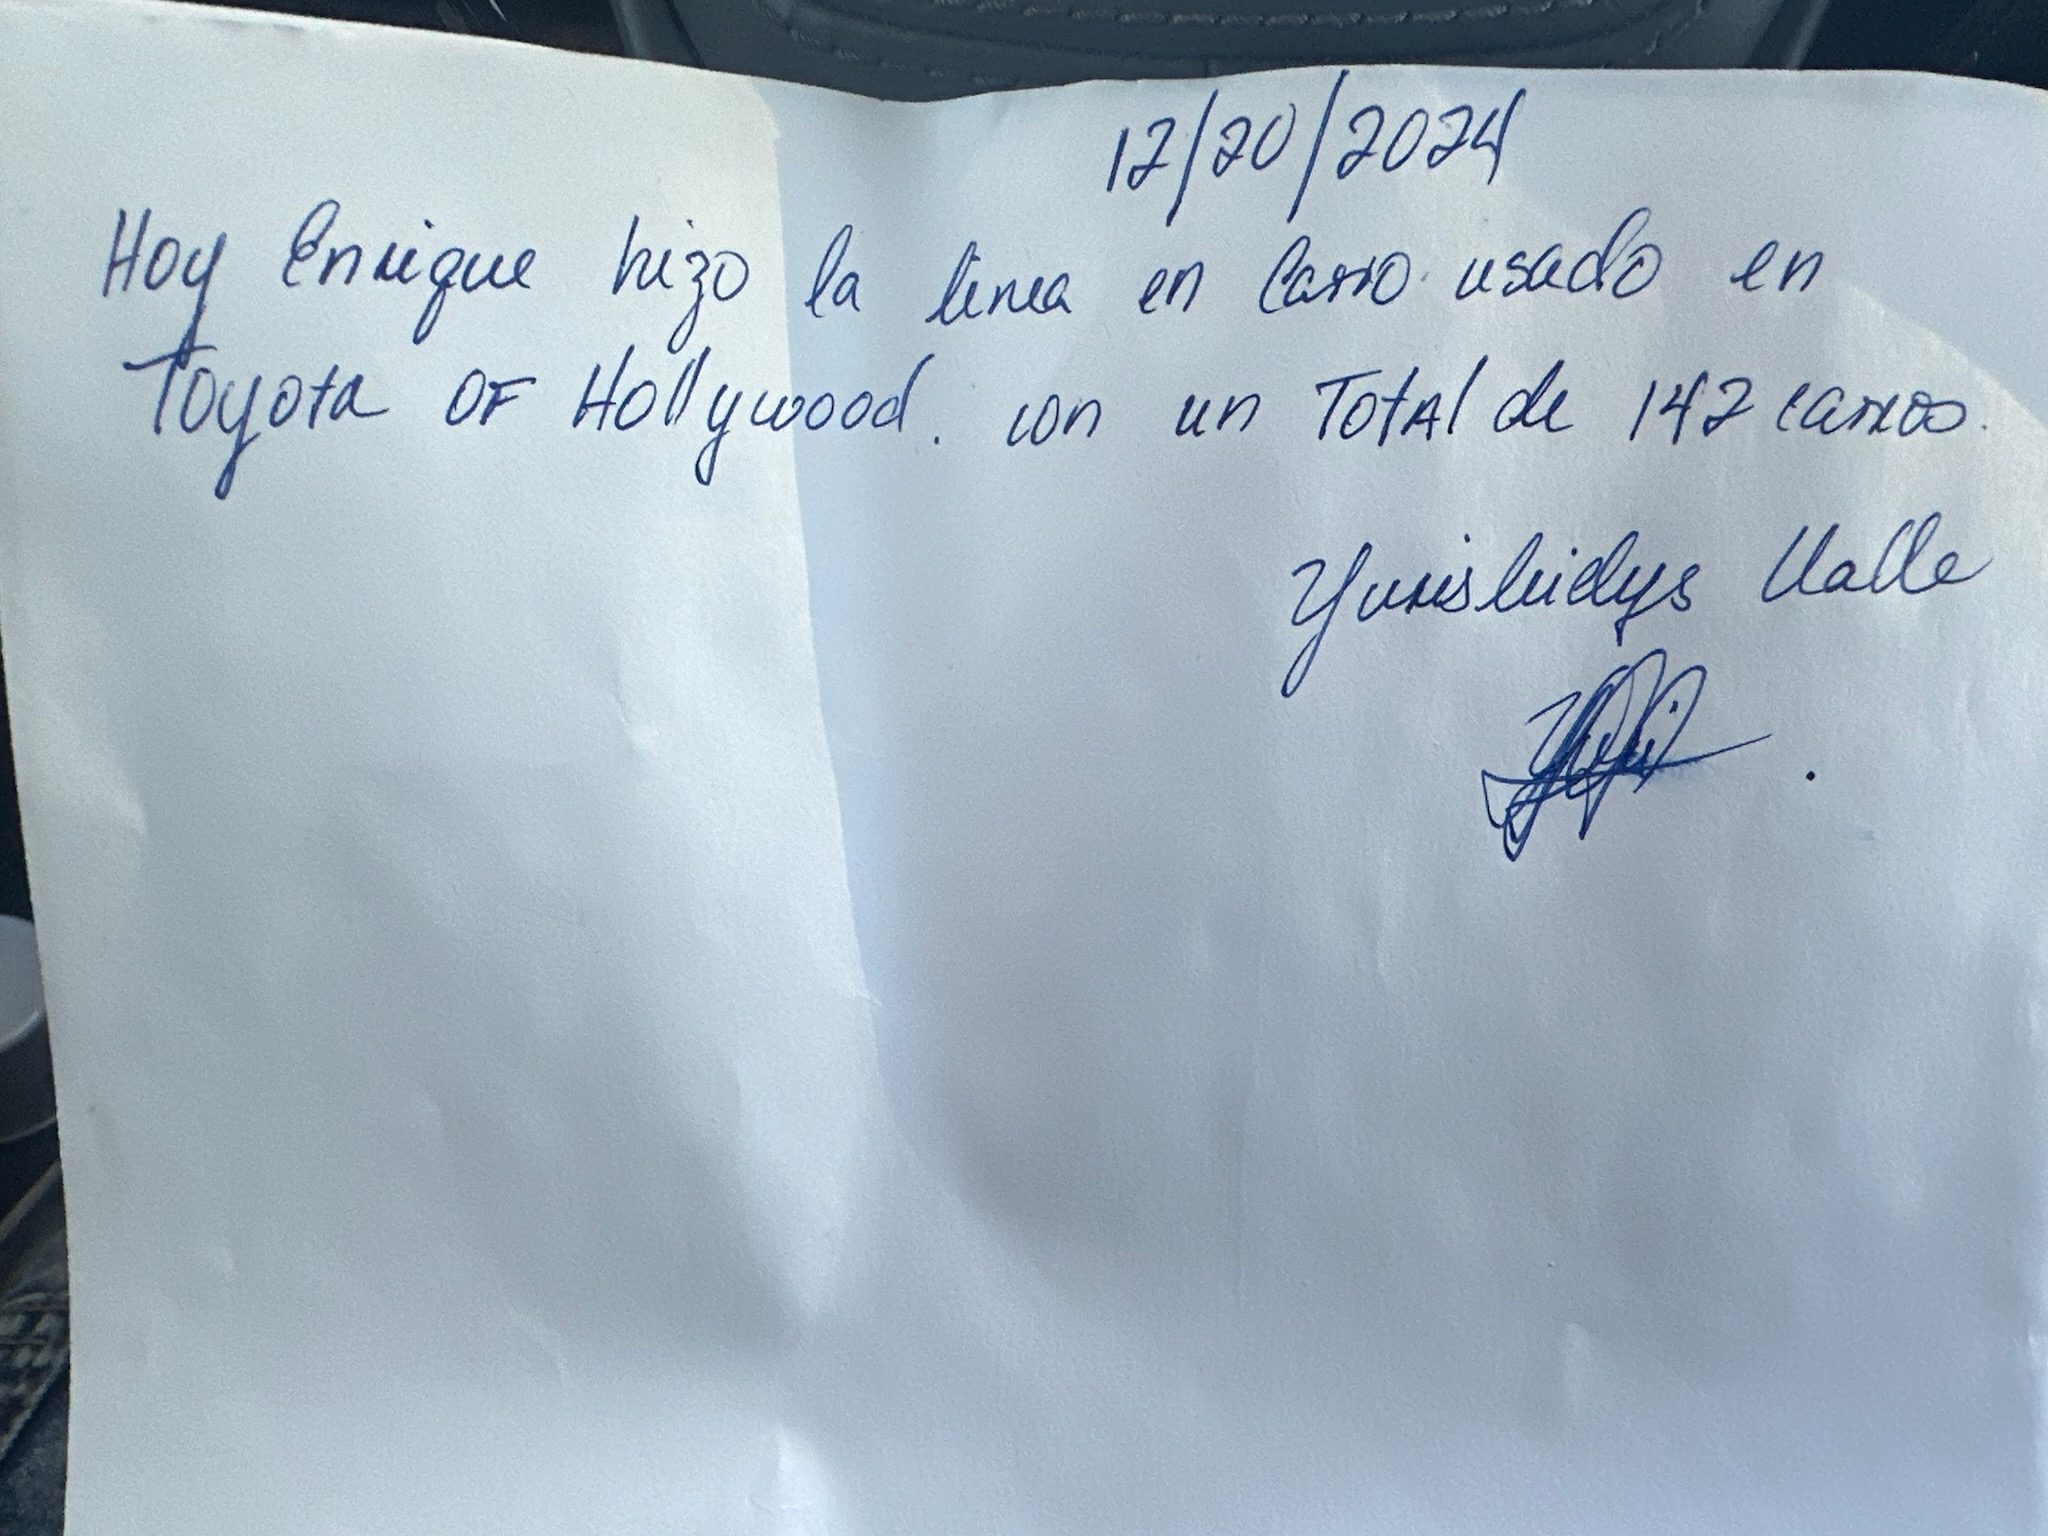 12/20/2024
Hoy Enrique hizo la linea en Carro usado en
Toyota OF Hollywood. con un TotAl de 142 carros.
Yurisleidys Valle